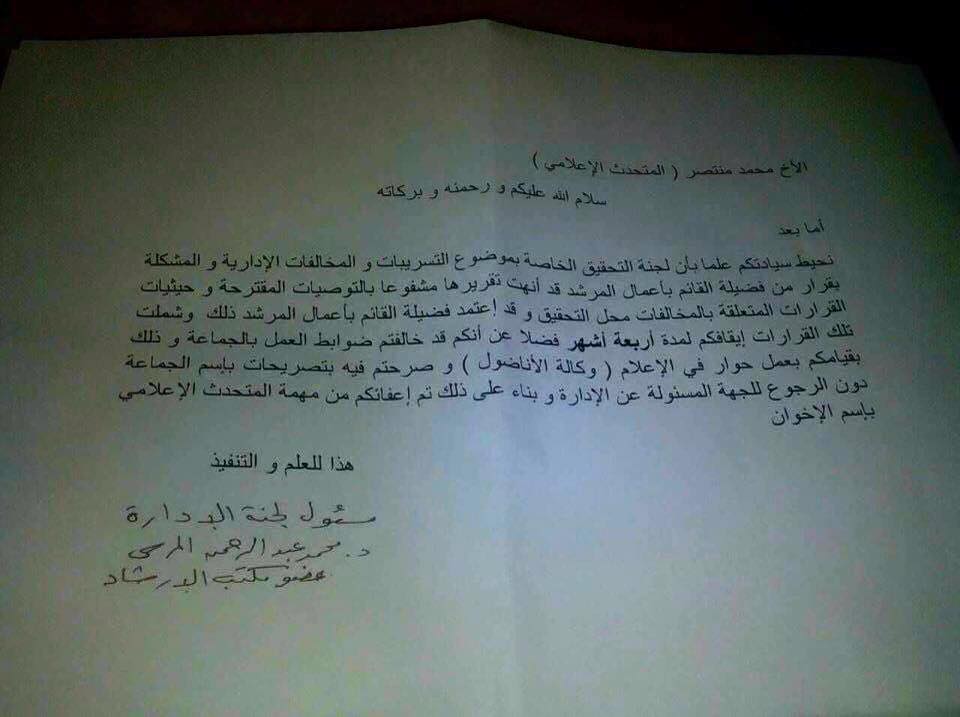 الأخ محمد منتصر ( المتحدث الإعلامي )
سلام الله عليكم و رحمته و بركاته
أما بعد
نحيط سيادتكم علما بأن لجنة التحقيق الخاصة بموضوع التسريبات و المخالفات الإدارية و المشكلة
بقرار من فضيلة القائم بأعمال المرشد قد أنهت تقريرها مشفوعا بالتوصيات المقترحة و حيثيات
القرارات المتعلقة بالمخالفات محل التحقيق و قد إعتمد فضيلة القائم بأعمال المرشد ذلك وشملت
تلك القرارات إيقافكم لمدة أربعة أشهر فضلا عن أنكم قد خالفتم ضوابط العمل بالجماعة و ذلك
بقيامكم بعمل حوار في الإعلام ( وكالة الأناضول ) و صرحتم فيه بتصريحات بإسم الجماعة
دون الرجوع للجهة المسئولة عن الإدارة و بناء على ذلك تم إعفائكم من مهمة المتحدث الإعلامي
بإسم الإخوان
هذا للعلم و التنفيذ
مسئول لجنة الإدارة
د. محمد عبد الرحمن المرسى
عضو مكتب الإرشاد